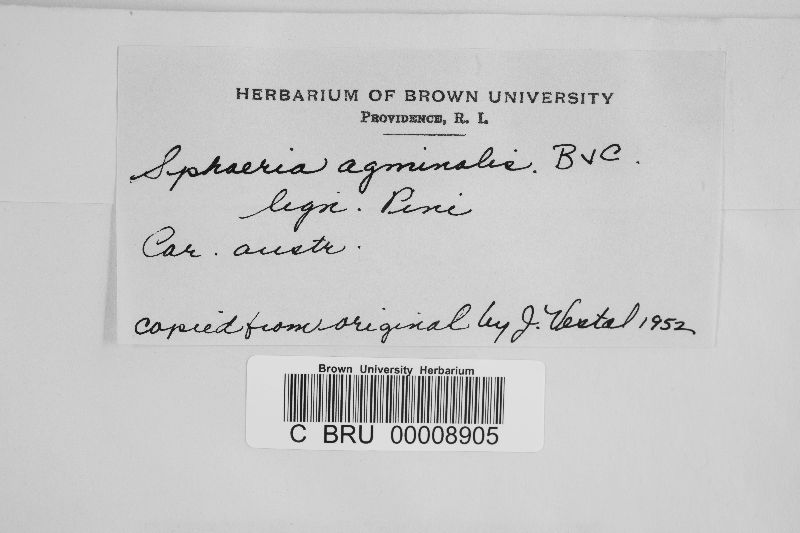 HERBARIUM OF BROWN UNIVERSITY
PROVIDENCE, R. I.
Sphaeria agminalis. B & C.
lign. Pini
Car. austr.
copied from original by J. Vestal 1952
Brown University Herbarium
C BRU 00008905